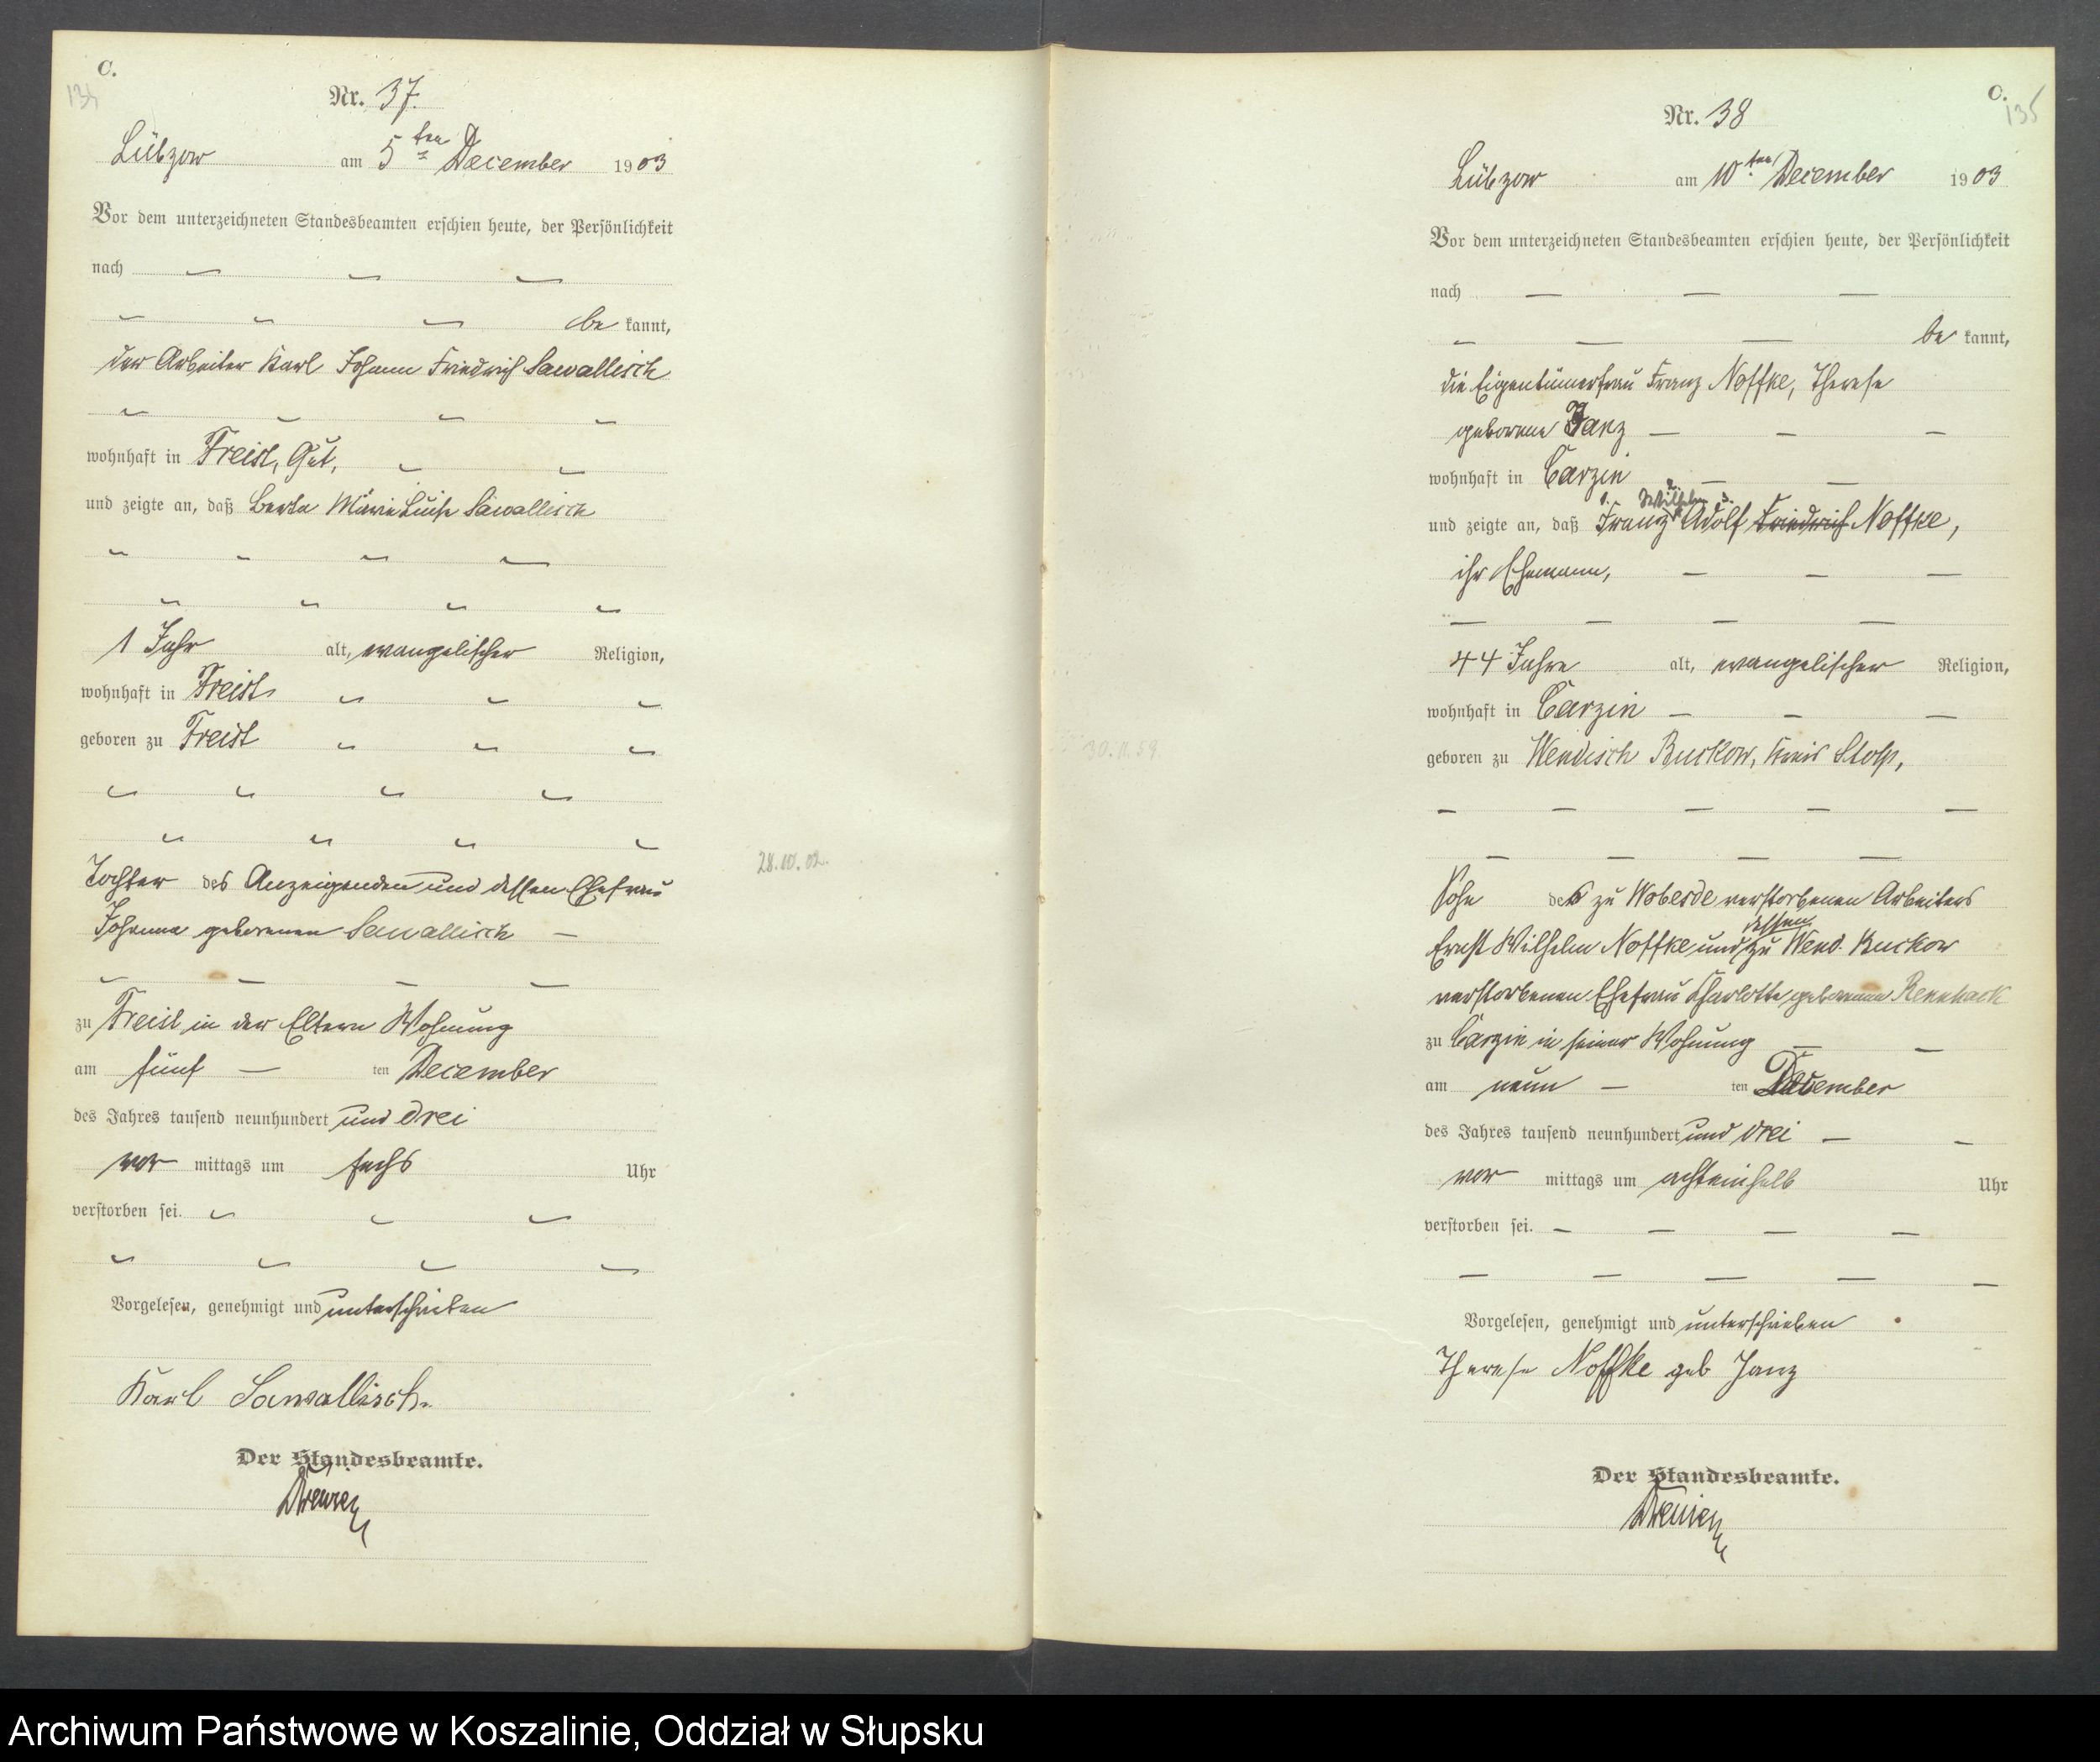 C.
134
Nr. 37.
Lübzow am 5ten December 1903
Vor dem unterzeichneten Standesbeamten erschien heute, der Persönlichkeit
nach
be kannt,
der Arbeiter Karl Johann Friedrich Sawallisch
wohnhaft in Freist, Gut,
und zeigte an, daß Berta Marie Luise Sawallisch
1 Jahr alt, evangelischer Religion,
wohnhaft in Freist
geboren zu Freist
28.10.02.
Tochter des Anzeigenden und dessen Ehefrau
Johanna geborenen Sawallisch
zu Freist in der Eltern Wohnung
am fünf ten December
des Jahres tausend neunhundert und drei
vor mittags um sechs Uhr
verstorben sei.
Vorgelesen, genehmigt und unterschrieben
Karl Sawallisch.
Der Standesbeamte.
C.
135
Nr. 38
Lübzow am 10ten December 1903
Vor dem unterzeichneten Standesbeamten erschien heute, der Persönlichkeit
nach
be kannt,
die Eigentümerfrau Franz Noffke, Therese
geborene Janz
wohnhaft in Carzin
und zeigte an, daß Franz Wilhelm Adolf Friedrich Noffke,
ihr Ehemann,
44 Jahre alt, evangelischer Religion,
wohnhaft in Carzin
geboren zu Wendisch Buckow, Kreis Stolp,
30.11.59
Sohn des zu Wobesde verstorbenen Arbeiters
Ernst Wilhelm Noffke und dessen zu Wend. Buckow
verstorbenen Ehefrau Charlotte geborenen
zu Carzin in seiner Wohnung
am neun ten December
des Jahres tausend neunhundert und drei
vor mittags um achteinhalb Uhr
verstorben sei.
Vorgelesen, genehmigt und unterschrieben
Therese Noffke geb Janz
Der Standesbeamte.
Archiwum Państwowe w Koszalinie, Oddział w Słupsku